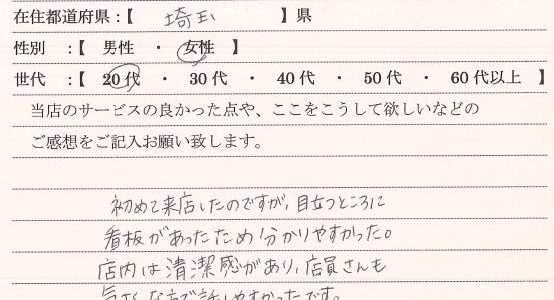 在住都道府県:【 埼玉 】県
性別 :【 男性 ・ 女性 】
世代 :【 20代 ・ 30代 ・ 40代 ・ 50代 ・ 60代以上 】
当店のサービスの良かった点や、ここをこうして欲しいなどの
ご感想をご記入お願い致します。
初めて来店したのですが、目立つところに
看板があったため分かりやすかった。
店内は清潔感があり、店員さんも
気さくな方で話しやすかったです。